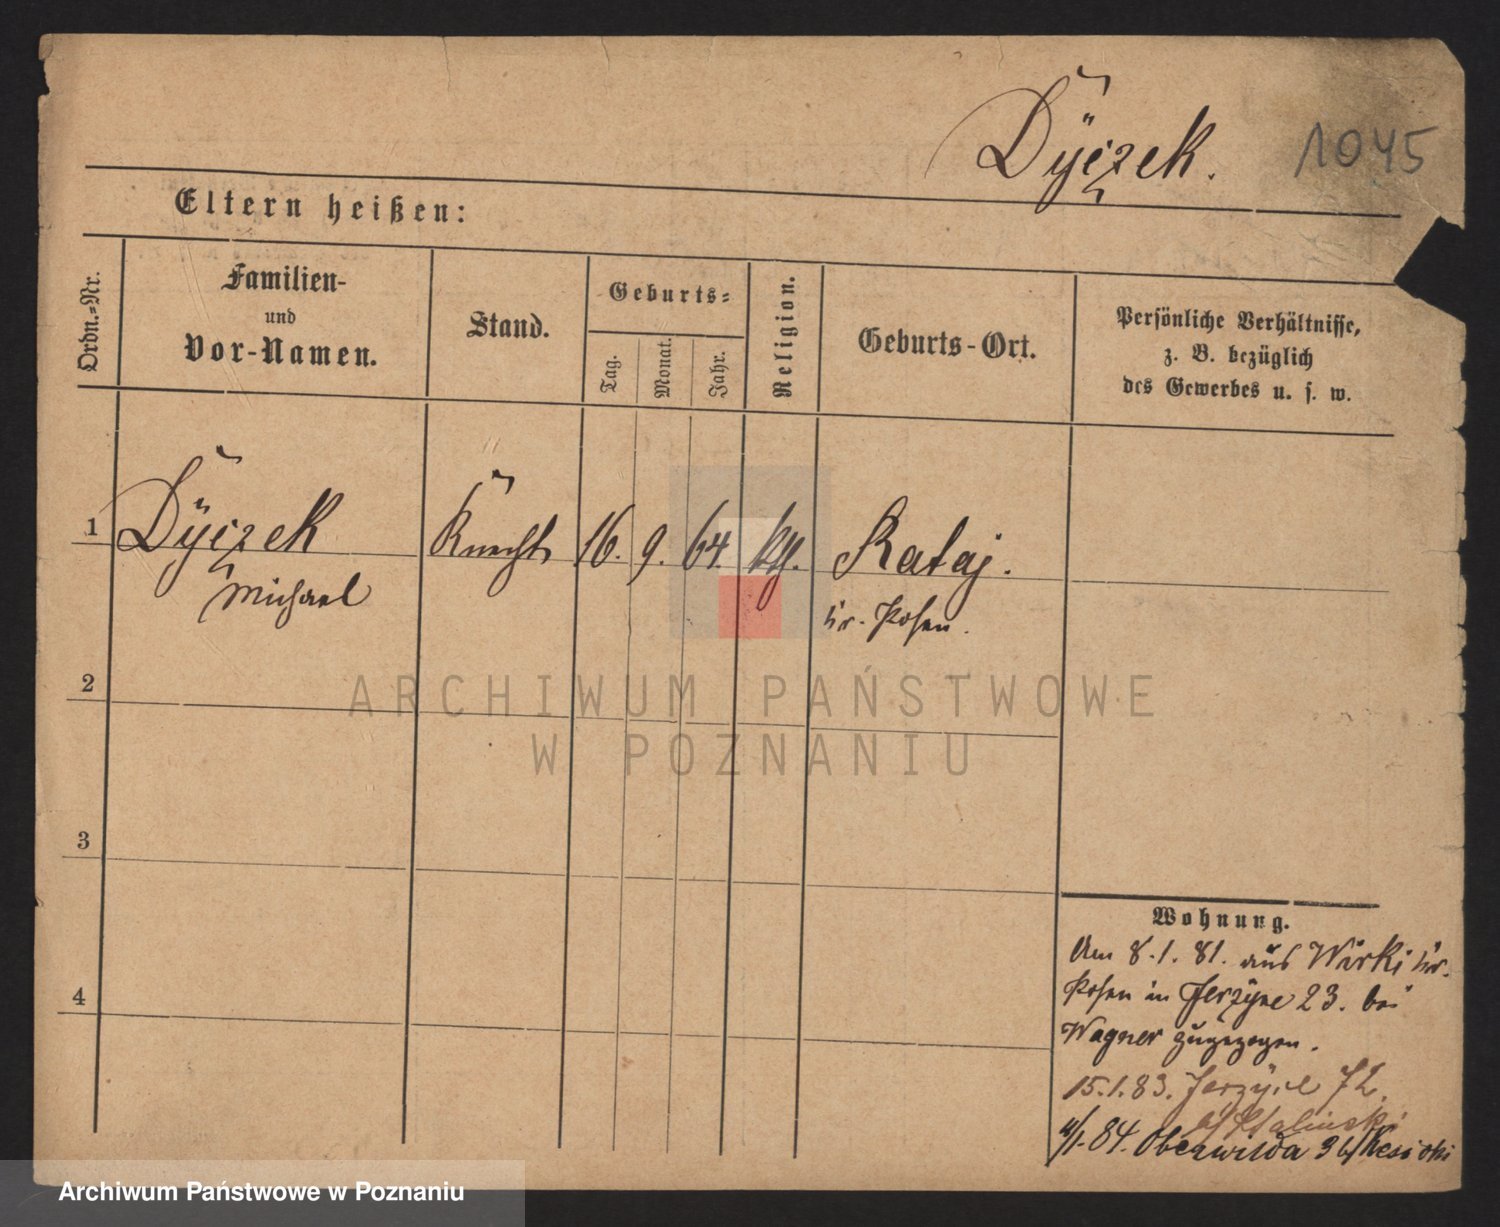 Dÿczek. 1045
Eltern heißen:
Ordn.=Nr.
Familien-
und
Vor-Namen.
Stand.
Geburts=
Tag.
Monat.
Jahr.
Religion.
Geburts-Ort.
Persönliche Verhältnisse,
z. B. bezüglich
des Gewerbes u. s. w.
1 Dÿczek Knecht 16. 9. 64. kth. Rataj.
Michael Kr. Posen.
2
3
4
ARCHIWUM PAŃSTWOWE
W POZNANIU
Wohnung.
Am 8.1.81. aus Wirki Kr.
Posen in Jerzyce 23. bei
Wagner zugezogen.
15.1.83. Jerzyce 72.
84. Oberwilda 36
Archiwum Państwowe w Poznaniu